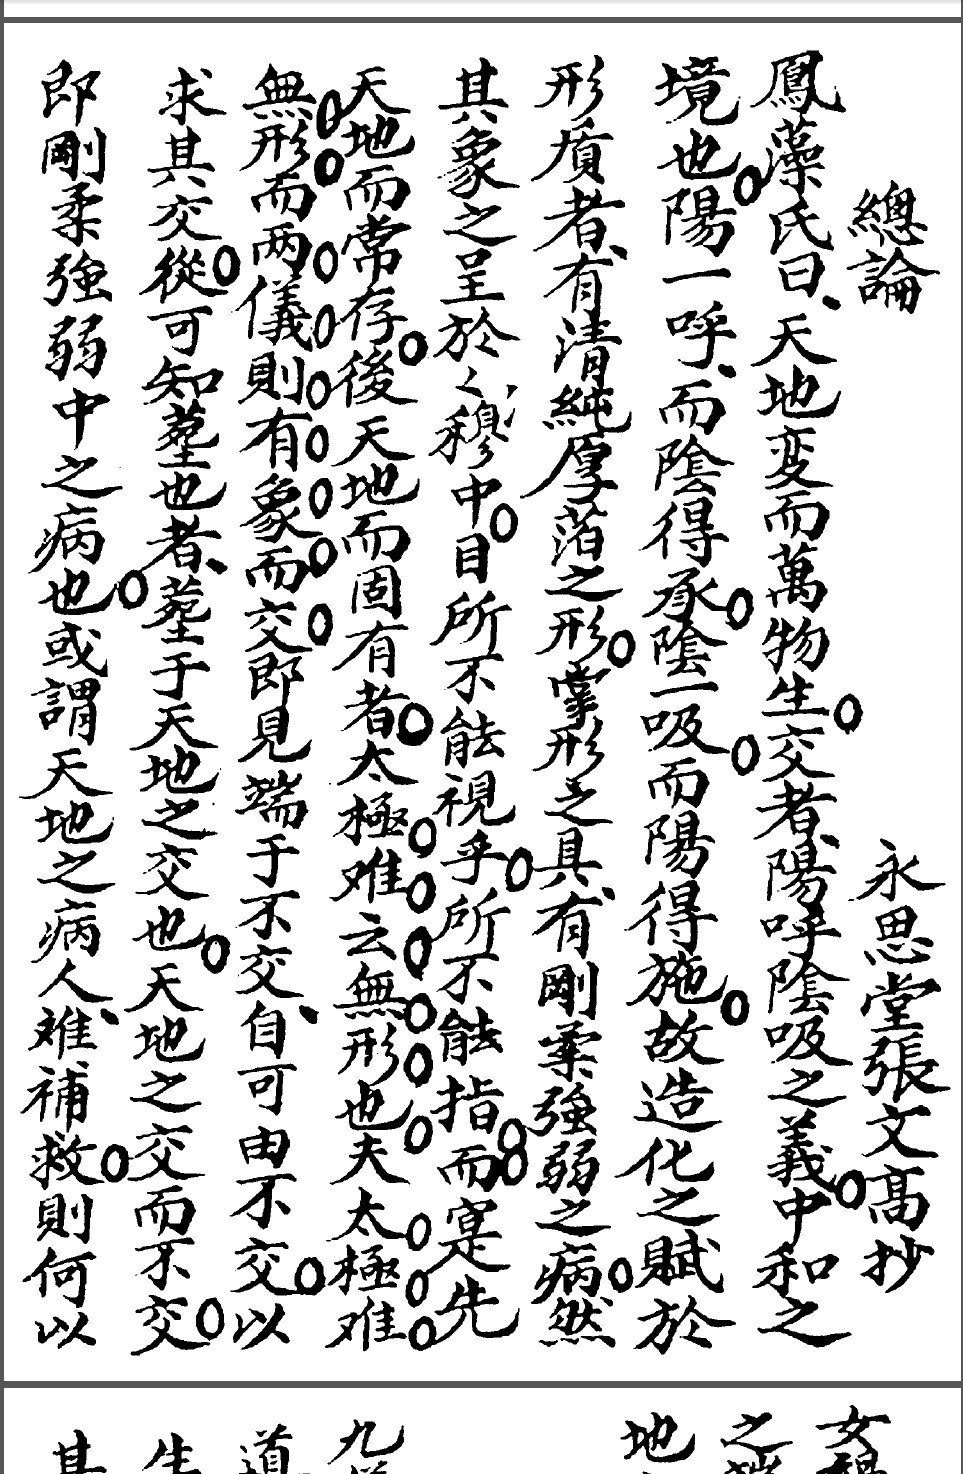 總論 永思堂張文高抄
鳳藻氏曰天地变而萬物生交者陽呼陰吸之義中和之
境也陽一呼而陰得承陰一吸而陽得施故造化之賦於
形質者有清純厚落之形掌形之具有剛柔強弱之病然
其象之呈於〻穆中目所不能視乎所不能指而寔先
天地而常存後天地而固有者太極难云無形也夫太極难
無形而两儀則有象而交即見端于不交自可由不交以
求其交從可知塟也者塟于天地之交也天地之交而不交
即剛柔強弱中之病也或謂天地之病人难補救則何以
女
之
地
九
道
生
其